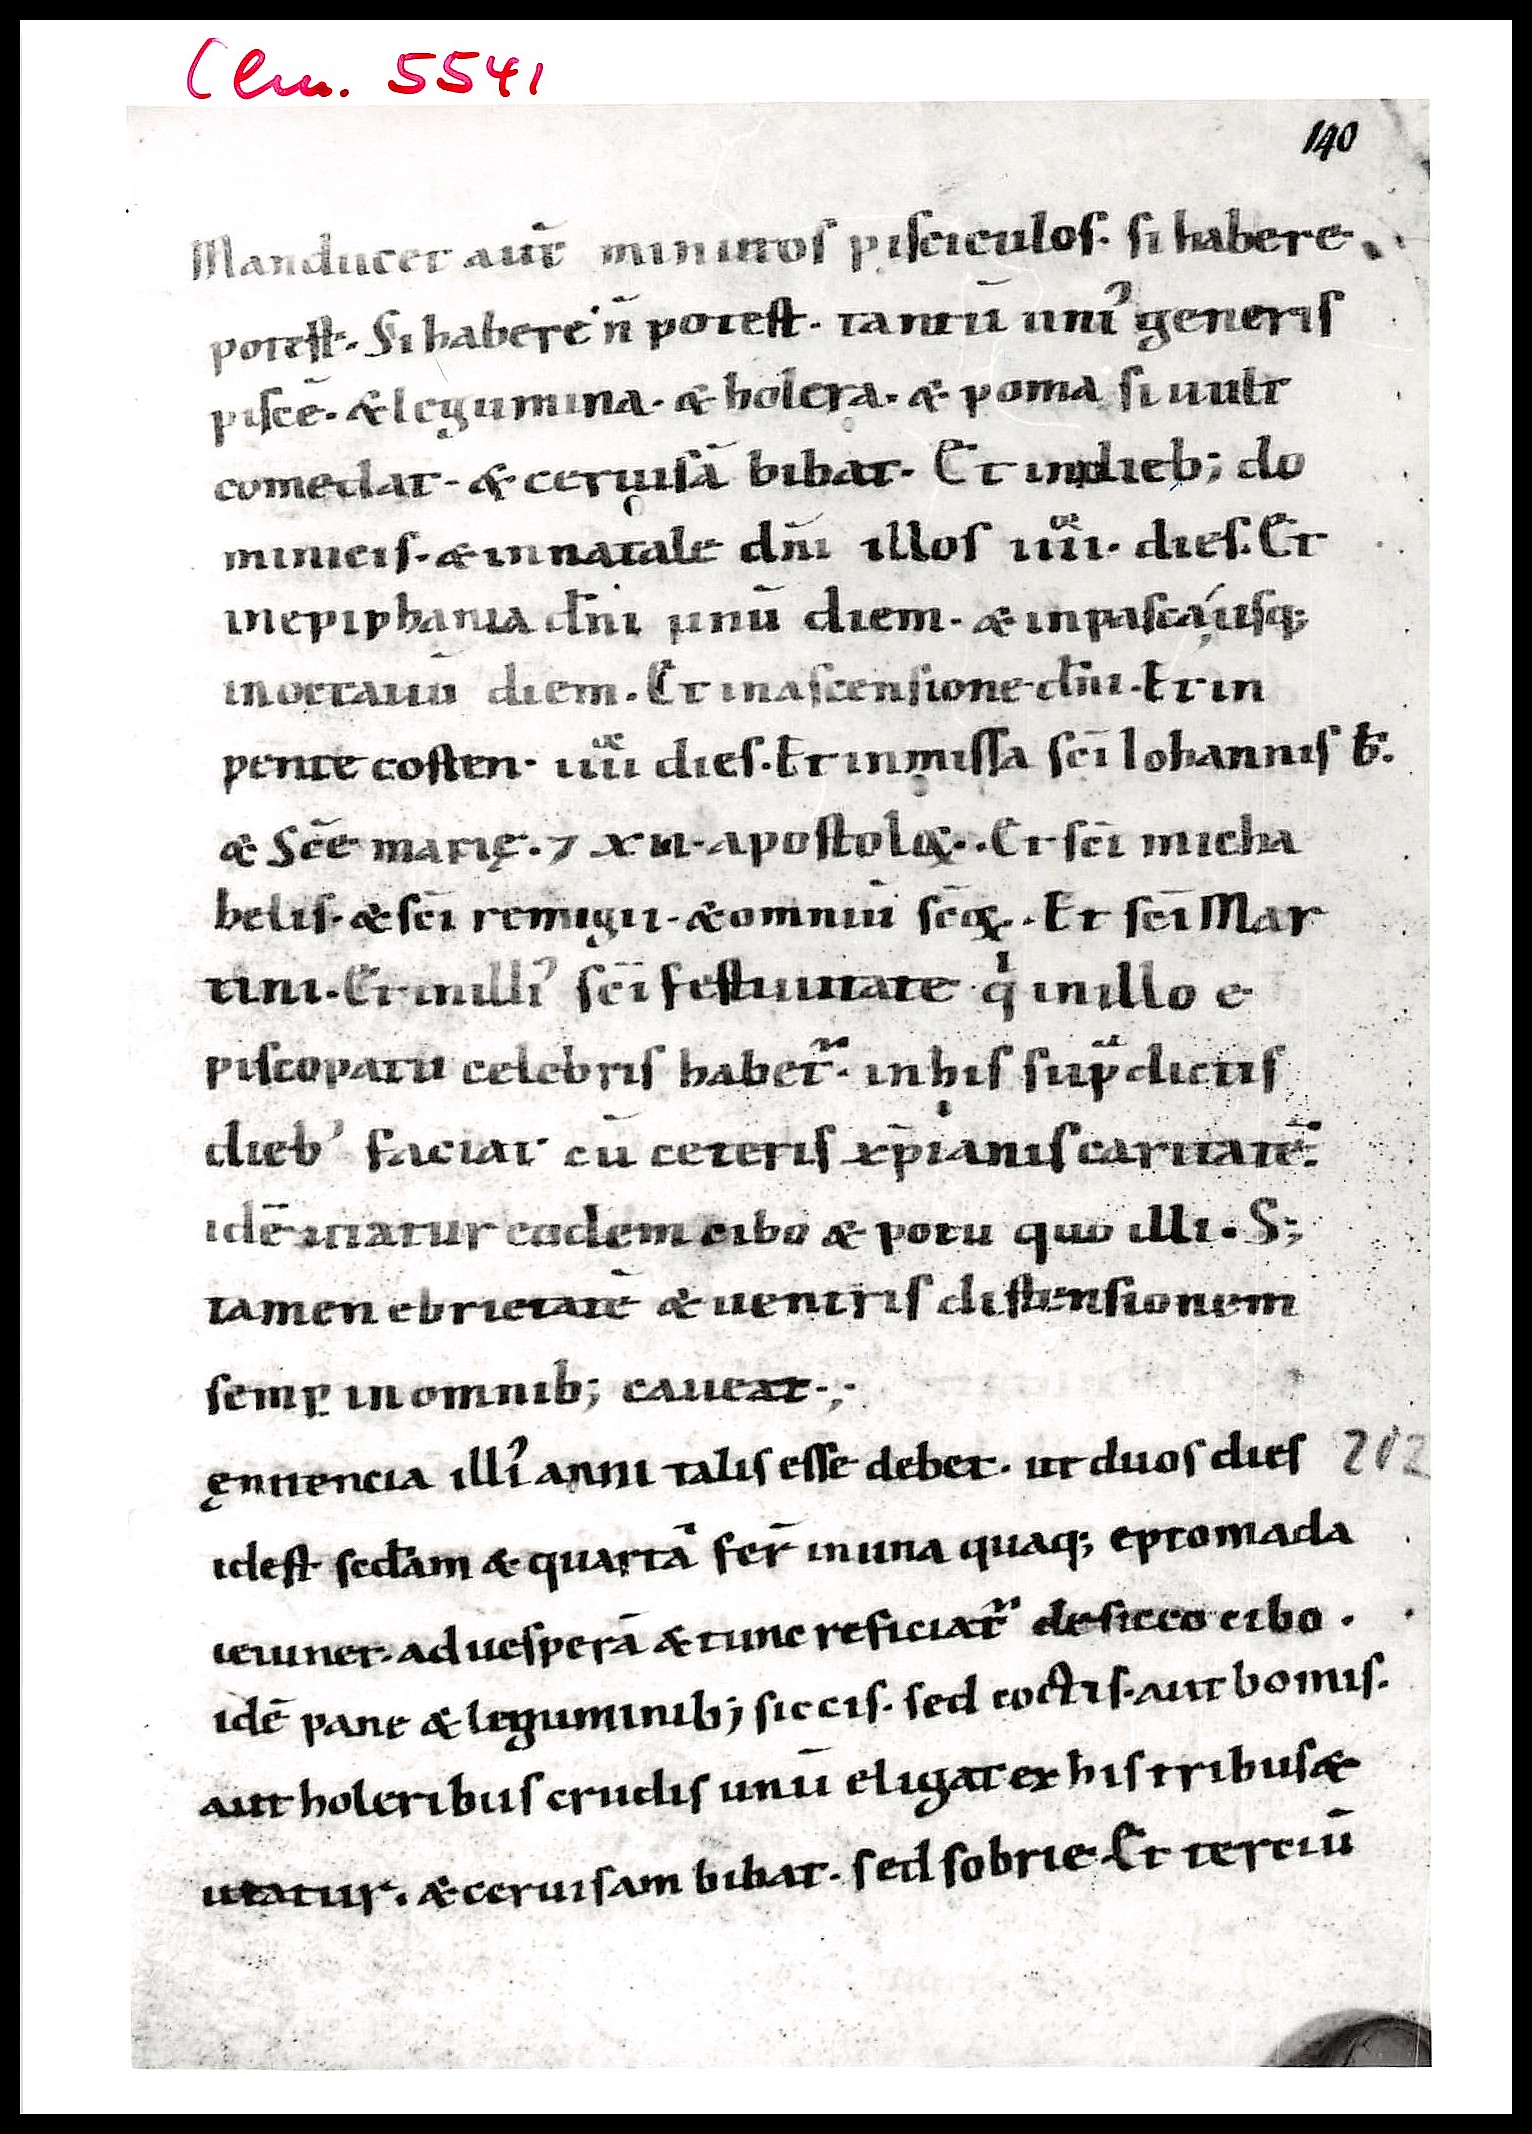 Clm. 5541
140
Manducet aut̄ minutos pisciculos. si habere
potest. Si habere n̄ potest. tantū uniꝰ generis
piscē. & legumina. & holera. & poma si uult
comedat. & ceruisā bibat. Et indieb; do
minicis. & innatale dn̄i illos iiii. dies. Et
inepiphania dn̄i unū diem. & inpasca usq;
inoctauū diem. Et inascensione dn̄i. Et in
pentecosten. iiii dies. Et inmissa sc̄i Iohannis b̄.
& Sc̄e marię. ⁊ xii. apostoloꝝ. Et sc̄i micha
helis. & sc̄i remigii. & omniū sc̄oꝝ. Et sc̄i Mar
tini. Et inilliꝰ sc̄i festiuitate qͥ inillo e
piscopatu celebris habet᷑. inhis supᵃdictis
diebꝰ faciat cū ceteris xp̄ianis caritatē.
idē utatur eodem cibo & potu quo illi. S;
tamen ebrietatē & uentris distensionem
semꝑ inomnib; caueat.,.
ęnitencia illiꝰ anni talis esse debet. ut duos dies
212
idest scdam & quartā fer̄ inuna quaq; eptomada
ieiunet. ad uesperā & tunc reficiat᷑ desicco cibo.
idē pane & leguminib; siccis. sed coctis. aut bomis.
aut holeribus crudis unū eligat ex his tribus &
utatur. & ceruisam bibat. sed sobrie. Et terciū